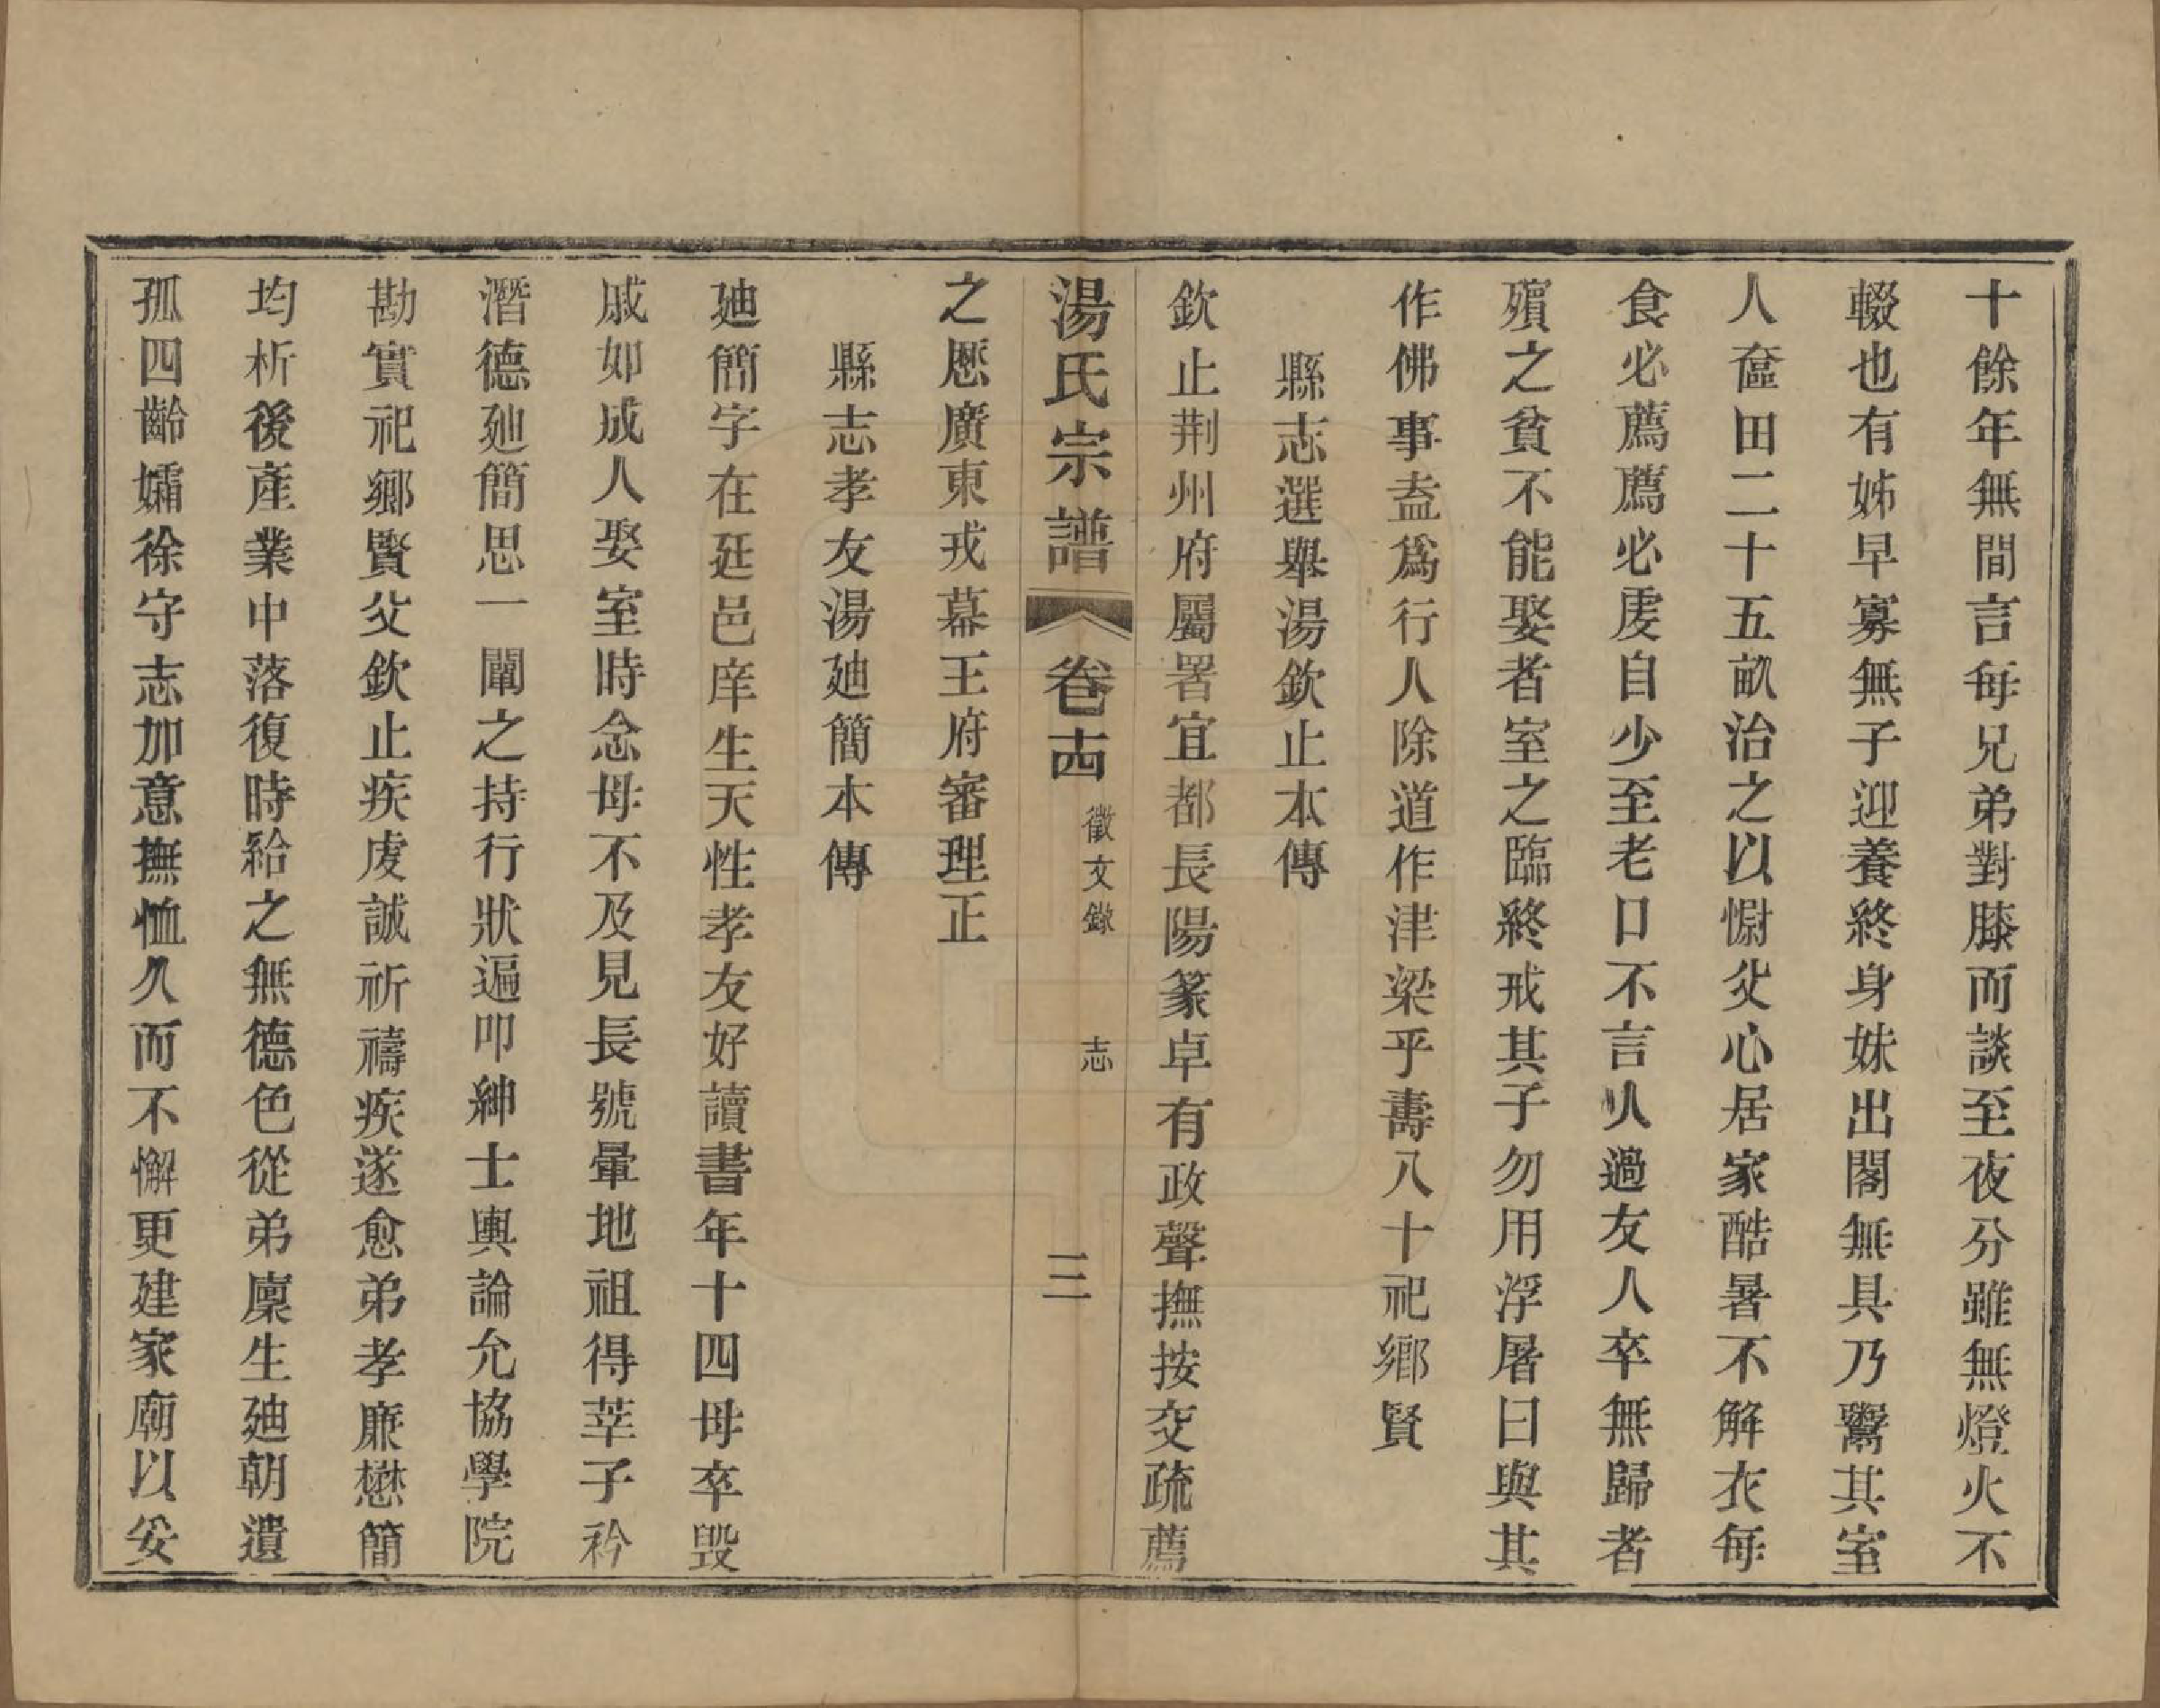 十餘年無間言每兄弟對膝而談至夜分雖無燈火不
輟也有姊早寡無子迎養終身妹出閣無具乃鬻其室
人奩田二十五畝治之以慰父心居家酷暑不解衣每
食必薦薦必虔自少至老口不言人過友人卒無歸者
殯之貧不能娶者室之臨終戒其子勿用浮屠曰與其
作佛事盍爲行人除道作津梁乎壽八十祀鄉賢
縣志選舉湯欽止本傳
欽止荆州府屬署宜都長陽篆卓有政聲撫按交疏薦
湯氏宗譜 卷十四 徵文錄 志 三
之歷廣東戎幕王府審理正
縣志孝友湯廸簡本傳
廸簡字在廷邑庠生天性孝友好讀書年十四母卒毀
戚如成人娶室時念母不及見長號暈地祖得莘子衿
潛德廸簡思一闡之持行狀遍叩紳士輿論允協學院
勘實祀鄉賢父欽止疾虔誠祈禱疾遂愈弟孝廉懋簡
均析後產業中落復時給之無德色從弟廩生廸朝遺
孤四齡孀徐守志加意撫恤久而不懈更建家廟以妥